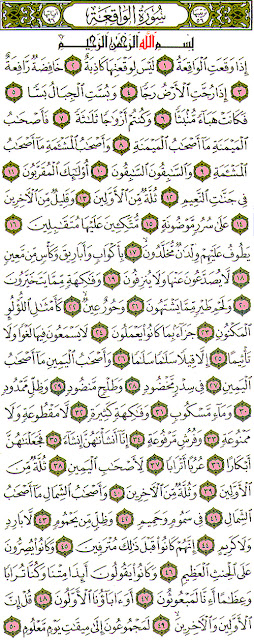 سُورَةُ الْوَاقِعَةِ
بِسْمِ اللَّهِ الرَّحْمَٰنِ الرَّحِيمِ
إِذَا وَقَعَتِ الْوَاقِعَةُ ١ لَيْسَ لِوَقْعَتِهَا كَاذِبَةٌ ٢ خَافِضَةٌ رَّافِعَةٌ
٣ إِذَا رُجَّتِ الْأَرْضُ رَجًّا ٤ وَبُسَّتِ الْجِبَالُ بَسًّا ٥
فَكَانَتْ هَبَاءً مُّنبَثًّا ٦ وَكُنتُمْ أَزْوَاجًا ثَلَاثَةً ٧ فَأَصْحَابُ
الْمَيْمَنَةِ مَا أَصْحَابُ الْمَيْمَنَةِ ٨ وَأَصْحَابُ الْمَشْئَمَةِ مَا أَصْحَابُ
الْمَشْئَمَةِ ٩ وَالسَّابِقُونَ السَّابِقُونَ ١٠ أُولَٰئِكَ الْمُقَرَّبُونَ ١١
فِي جَنَّاتِ النَّعِيمِ ١٢ ثُلَّةٌ مِّنَ الْأَوَّلِينَ ١٣ وَقَلِيلٌ مِّنَ الْآخِرِينَ
١٤ عَلَىٰ سُرُرٍ مَّوْضُونَةٍ ١٥ مُّتَّكِئِينَ عَلَيْهَا مُتَقَابِلِينَ ١٦
يَطُوفُ عَلَيْهِمْ وِلْدَانٌ مُّخَلَّدُونَ ١٧ بِأَكْوَابٍ وَأَبَارِيقَ وَكَأْسٍ مِّن مَّعِينٍ
١٨ لَّا يُصَدَّعُونَ عَنْهَا وَلَا يُنزِفُونَ ١٩ وَفَاكِهَةٍ مِّمَّا يَتَخَيَّرُونَ
٢٠ وَلَحْمِ طَيْرٍ مِّمَّا يَشْتَهُونَ ٢١ وَحُورٌ عِينٌ ٢٢ كَأَمْثَالِ اللُّؤْلُؤِ
الْمَكْنُونِ ٢٣ جَزَاءً بِمَا كَانُوا يَعْمَلُونَ ٢٤ لَا يَسْمَعُونَ فِيهَا لَغْوًا وَلَا
تَأْثِيمًا ٢٥ إِلَّا قِيلًا سَلَامًا سَلَامًا ٢٦ وَأَصْحَابُ الْيَمِينِ مَا أَصْحَابُ
الْيَمِينِ ٢٧ فِي سِدْرٍ مَّخْضُودٍ ٢٨ وَطَلْحٍ مَّنضُودٍ ٢٩ وَظِلٍّ مَّمْدُودٍ
٣٠ وَمَاءٍ مَّسْكُوبٍ ٣١ وَفَاكِهَةٍ كَثِيرَةٍ ٣٢ لَّا مَقْطُوعَةٍ وَلَا
مَمْنُوعَةٍ ٣٣ وَفُرُشٍ مَّرْفُوعَةٍ ٣٤ إِنَّا أَنشَأْنَاهُنَّ إِنشَاءً ٣٥ فَجَعَلْنَاهُنَّ
أَبْكَارًا ٣٦ عُرُبًا أَتْرَابًا ٣٧ لِّأَصْحَابِ الْيَمِينِ ٣٨ ثُلَّةٌ مِّنَ
الْأَوَّلِينَ ٣٩ وَثُلَّةٌ مِّنَ الْآخِرِينَ ٤٠ وَأَصْحَابُ الشِّمَالِ مَا أَصْحَابُ
الشِّمَالِ ٤١ فِي سَمُومٍ وَحَمِيمٍ ٤٢ وَظِلٍّ مِّن يَحْمُومٍ ٤٣ لَّا بَارِدٍ
وَلَا كَرِيمٍ ٤٤ إِنَّهُمْ كَانُوا قَبْلَ ذَٰلِكَ مُتْرَفِينَ ٤٥ وَكَانُوا يُصِرُّونَ
عَلَى الْحِنثِ الْعَظِيمِ ٤٦ وَكَانُوا يَقُولُونَ أَئِذَا مِتْنَا وَكُنَّا تُرَابًا
وَعِظَامًا أَإِنَّا لَمَبْعُوثُونَ ٤٧ أَوَآبَاؤُنَا الْأَوَّلُونَ ٤٨ قُلْ إِنَّ
الْأَوَّلِينَ وَالْآخِرِينَ ٤٩ لَمَجْمُوعُونَ إِلَىٰ مِيقَاتِ يَوْمٍ مَّعْلُومٍ ٥٠